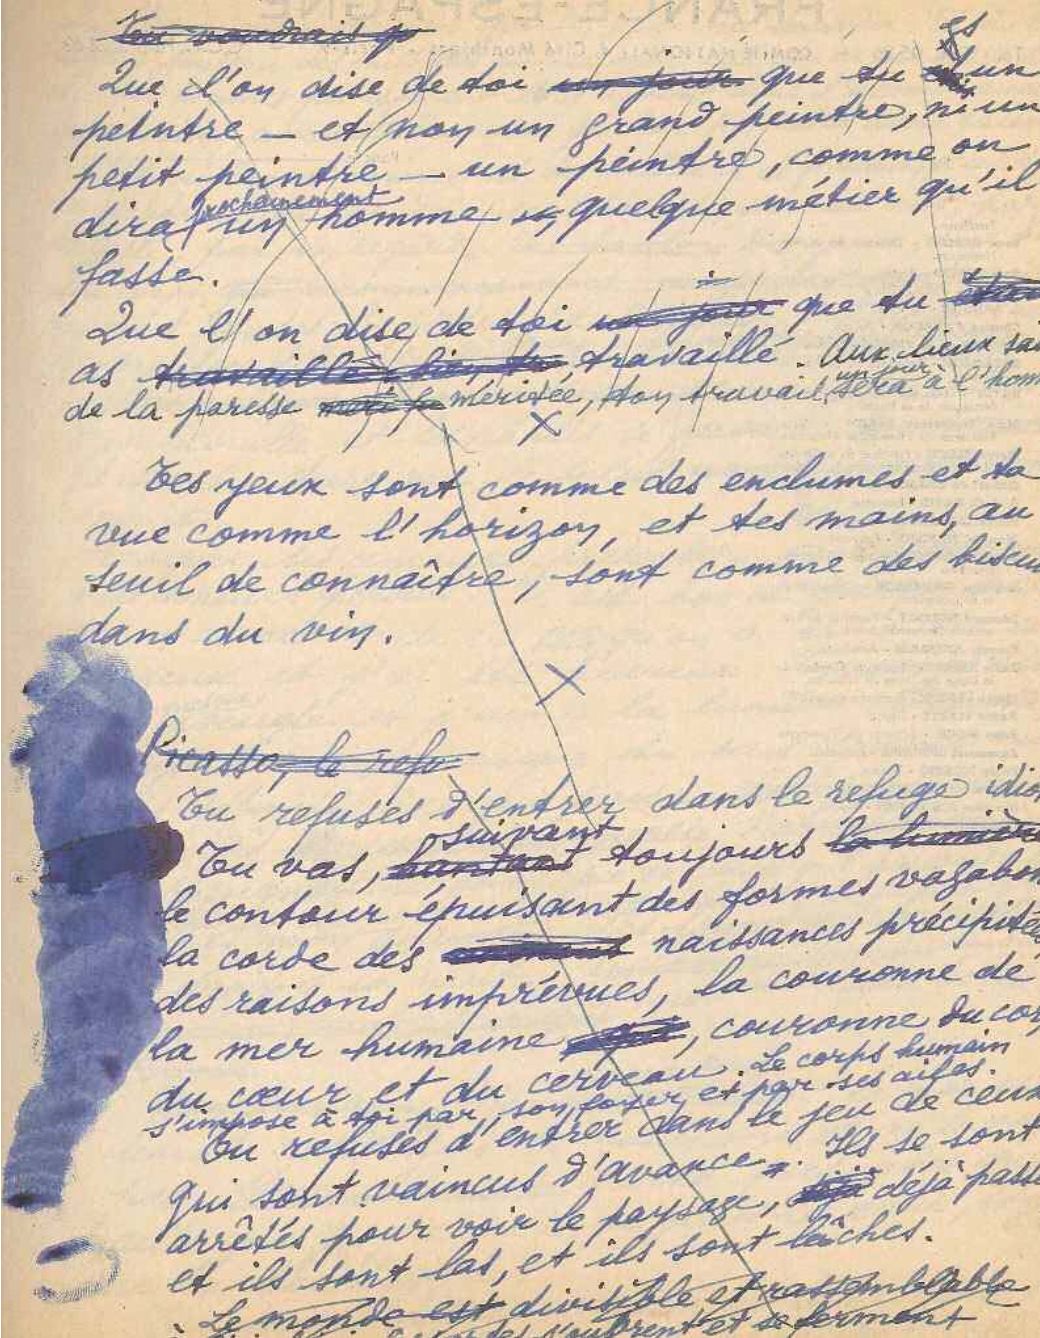 FRANCE-ESPAGNE
Tu voudrais qu
es
Que l'on dise de toi un jour que tu un
peintre — et non un grand peintre, ni un
petit peintre — un peintre, comme on
prochainement
dira un homme quelque métier qu'il
fasse.
Que l'on dise de toi un jour que tu
as travaillé bien travaillé. Aux lieux
un jour
de la paresse méritée, ton travail sera à l'hom
Tes yeux sont comme des enclumes et ta
vue comme l'horizon, et tes mains, au
seuil de connaître, sont comme des biscu
dans du vin.
Picasso, le refu
Tu refuses d'entrer dans le refuge idio
suivant
Tu vas, toujours la lumière
le contour épuisant des formes vagabon
la corde des naissances précipitée
des raisons imprévues, la couronne de
la mer humaine, couronne du cor
du cœur et du cerveau. Le corps humain
s'impose à toi par son foyer et par ses ailes.
Tu refuses d'entrer dans le jeu de ceux
qui sont vaincus d'avance. Ils se sont
arrêtés pour voir le paysage, déjà passé
et ils sont las, et ils sont lâches.
Le monde est divisible et rassemblable
s'ouvrent et se ferment